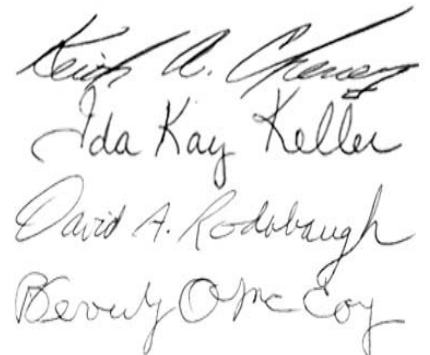 Keith A. Cheney
Ida Kay Keller
David A. Rodabaugh
Beverly O McCoy